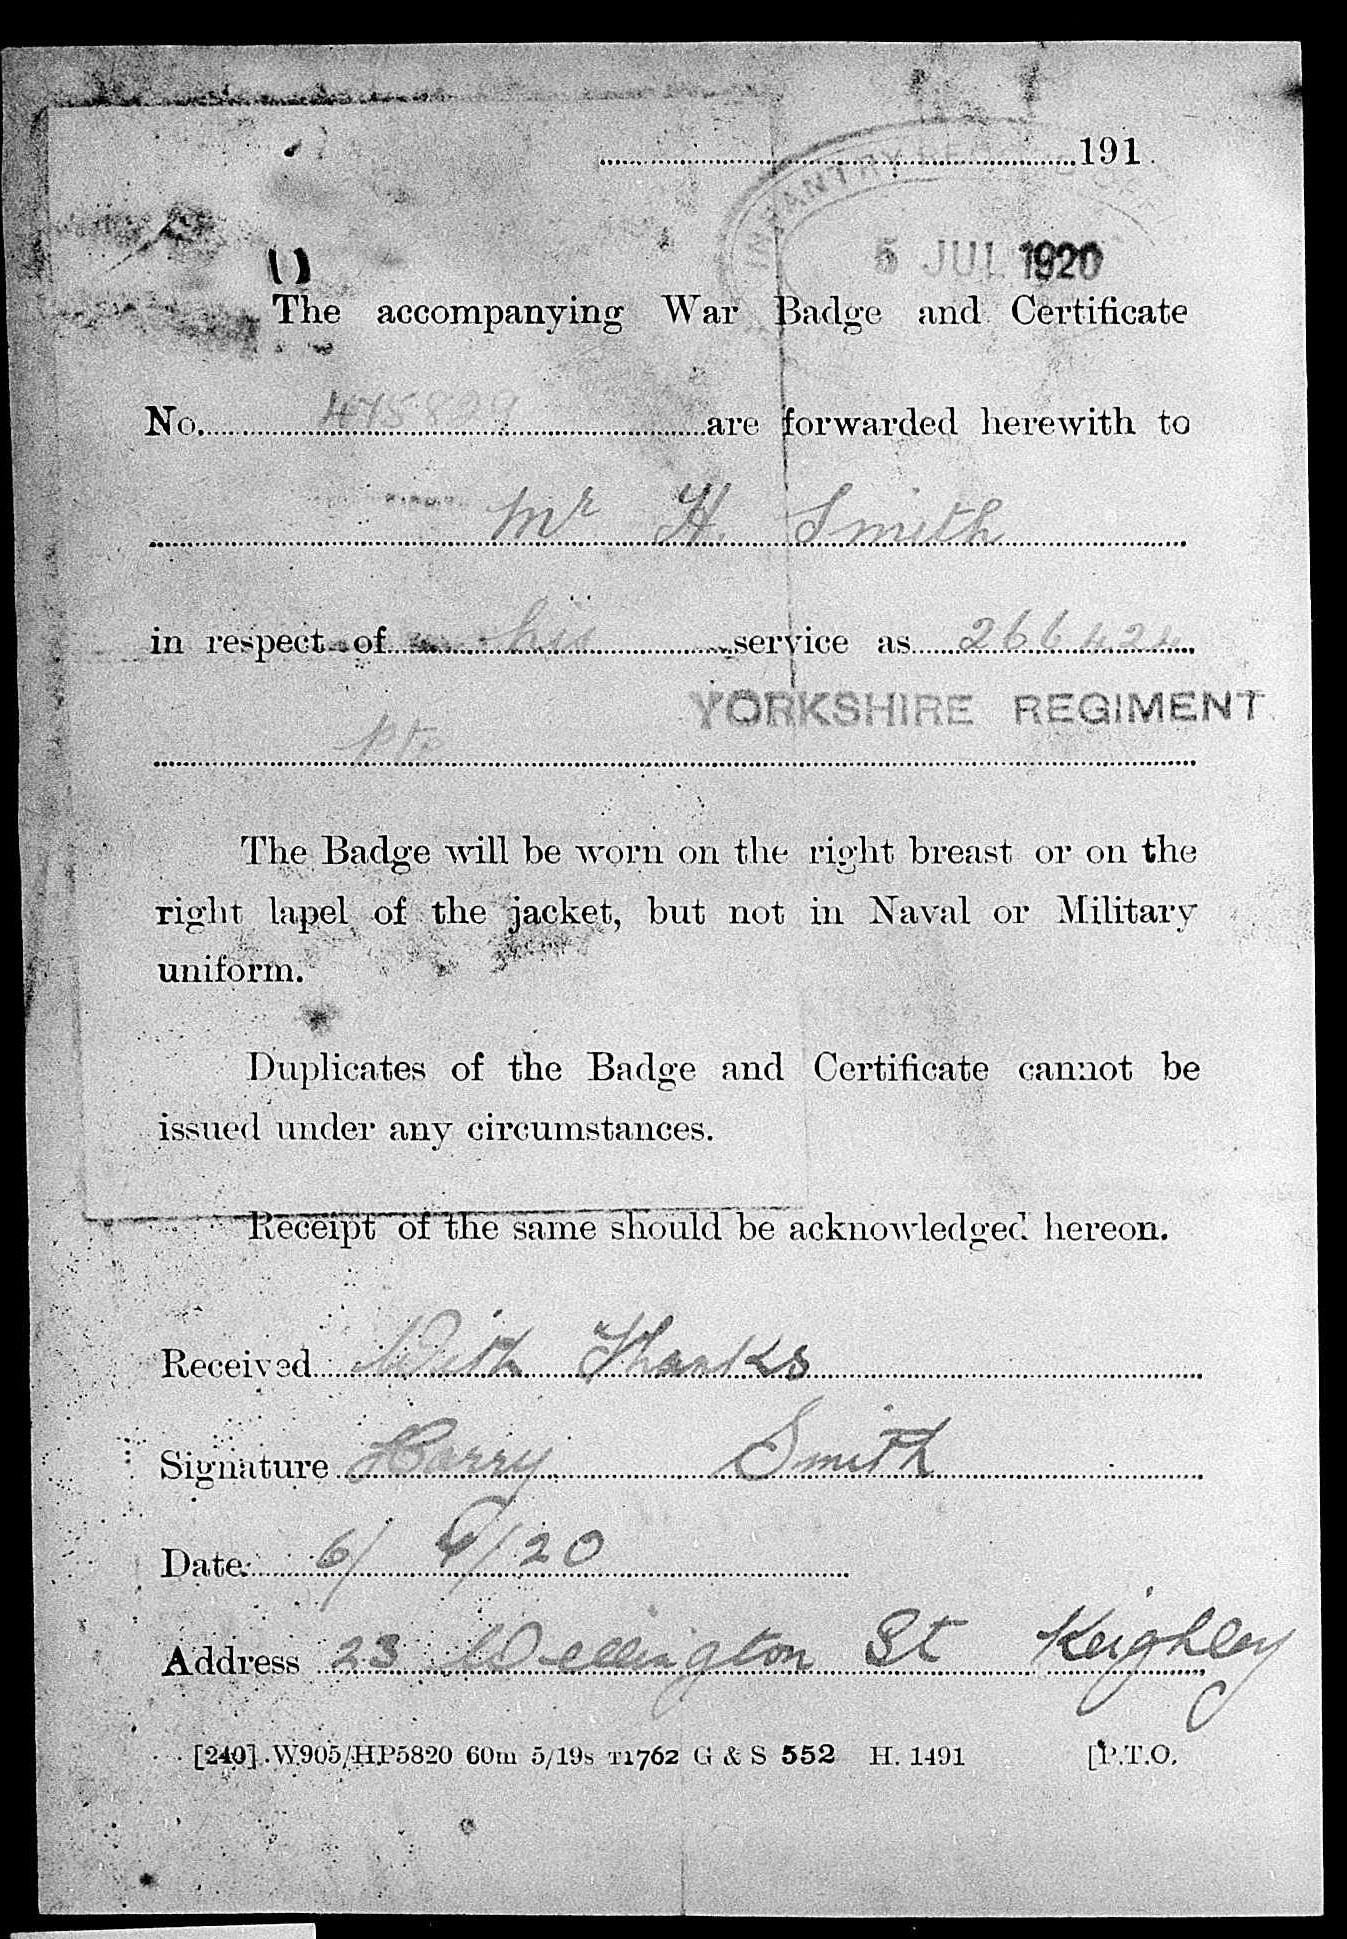 191
INFANTRY RECORD OFFICE
5 JUL 1920
The accompanying War Badge and Certificate
No. 475829 are forwarded herewith to
Mr H. Smith
in respect of his service as 266424
YORKSHIRE REGIMENT
Pte
The Badge will be worn on the right breast or on the
right lapel of the jacket, but not in Naval or Military
uniform.
Duplicates of the Badge and Certificate cannot be
issued under any circumstances.
Receipt of the same should be acknowledged hereon.
Received With Thanks
Signature Harry Smith
Date 6/ /20
Address 23 Wellington St Keighley
[240] W905/HP5820 60m 5/19s T1762 G & S 552 H. 1491 [P.T.O.